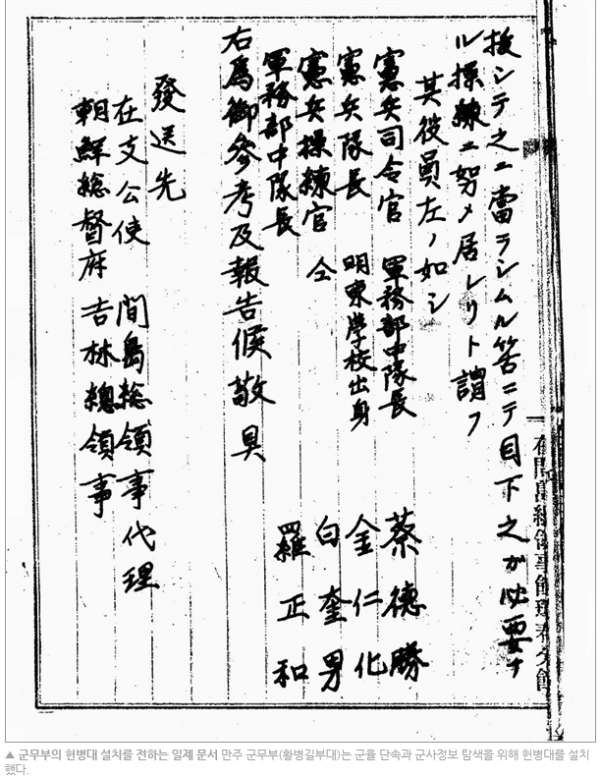 在間島総領事館琿春分館
拔シテ之ニ當ラシムル筈ニテ目下之ガ必要ナ
ル操練ニ努メ居レリト謂フ
其役員左ノ如シ
憲兵司令官 軍務部中隊長 蔡德勝
憲兵隊長 明東學校出身 金仁化
憲兵操練官 仝 白奎男
軍務部中隊長 羅正和
右爲御參考及報告候敬具
發送先
在支公使 間島総領事代理
朝鮮総督府 吉林總領事
▲ 군무부의 헌병대 설치를 전하는 일제 문서 만주 군무부(황병길부대)는 군율 단속과 군사정보 탐색을 위해 헌병대를 설치
했다.